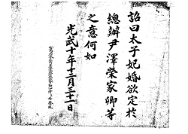 詔曰太子妃婚欲定於
總辦尹澤榮家卿等
之意何如
光武十年十二月三十一日